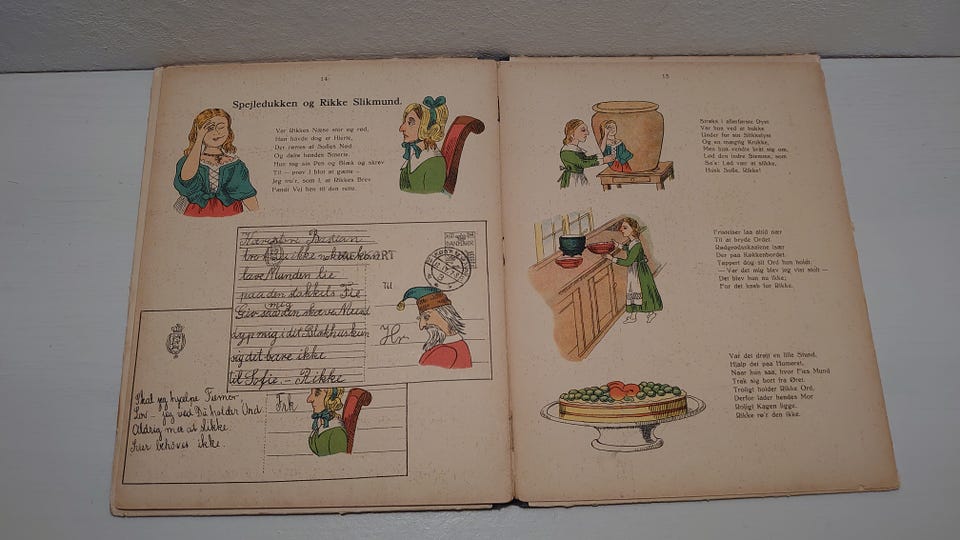 14
Spejledukken og Rikke Slikmund.
Var Rikkes Næse stor og rød,
Hun havde dog et Hjerte,
Der rørtes af Sofies Nød
Og delte hendes Smerte.
Hun tog sin Pen og Blæk og skrev
Til — prøv I blot at gætte —
Jeg tro'r, som I, at Rikkes Brev
Fandt Vej hen til den rette.
Kaptein Bastian
ikke
lave Munden lie
paa den stakkels Fie
mig
Giv saa den skæve Mund
dyp mig i dit Blækhus kun
sig det bare ikke
til Sofie. — Rikke
DANMARK
Til
Hr
Skal jeg hjælpe Fiemor,
Lov — jeg ved Du holder Ord
Aldrig mer at slikke.
Frk
15
Straks i allerførste Dyst
Var hun ved at bukke
Under for sin Slikkelyst
Og en mægtig Krukke,
Men hun vendte brat sig om,
Lød den indre Stemme, som
Sa'e: Lad vær at slikke,
Husk Sofie, Rikke!
Fristelser laa altid nær
Til at bryde Ordet.
Rødgrødsskaalene især
Der paa Køkkenbordet.
Tappert dog sit Ord hun holdt
— Var det mig blev jeg vist stolt —
Det blev hun nu ikke;
For det kneb for Rikke.
Var det drøjt en lille Stund,
Hjalp det paa Humøret,
Naar hun saa, hvor Fies Mund
Trak sig bort fra Øret.
Troligt holder Rikke Ord,
Derfor lader hendes Mor
Roligt Kagen ligge.
Rikke rø'r den ikke.